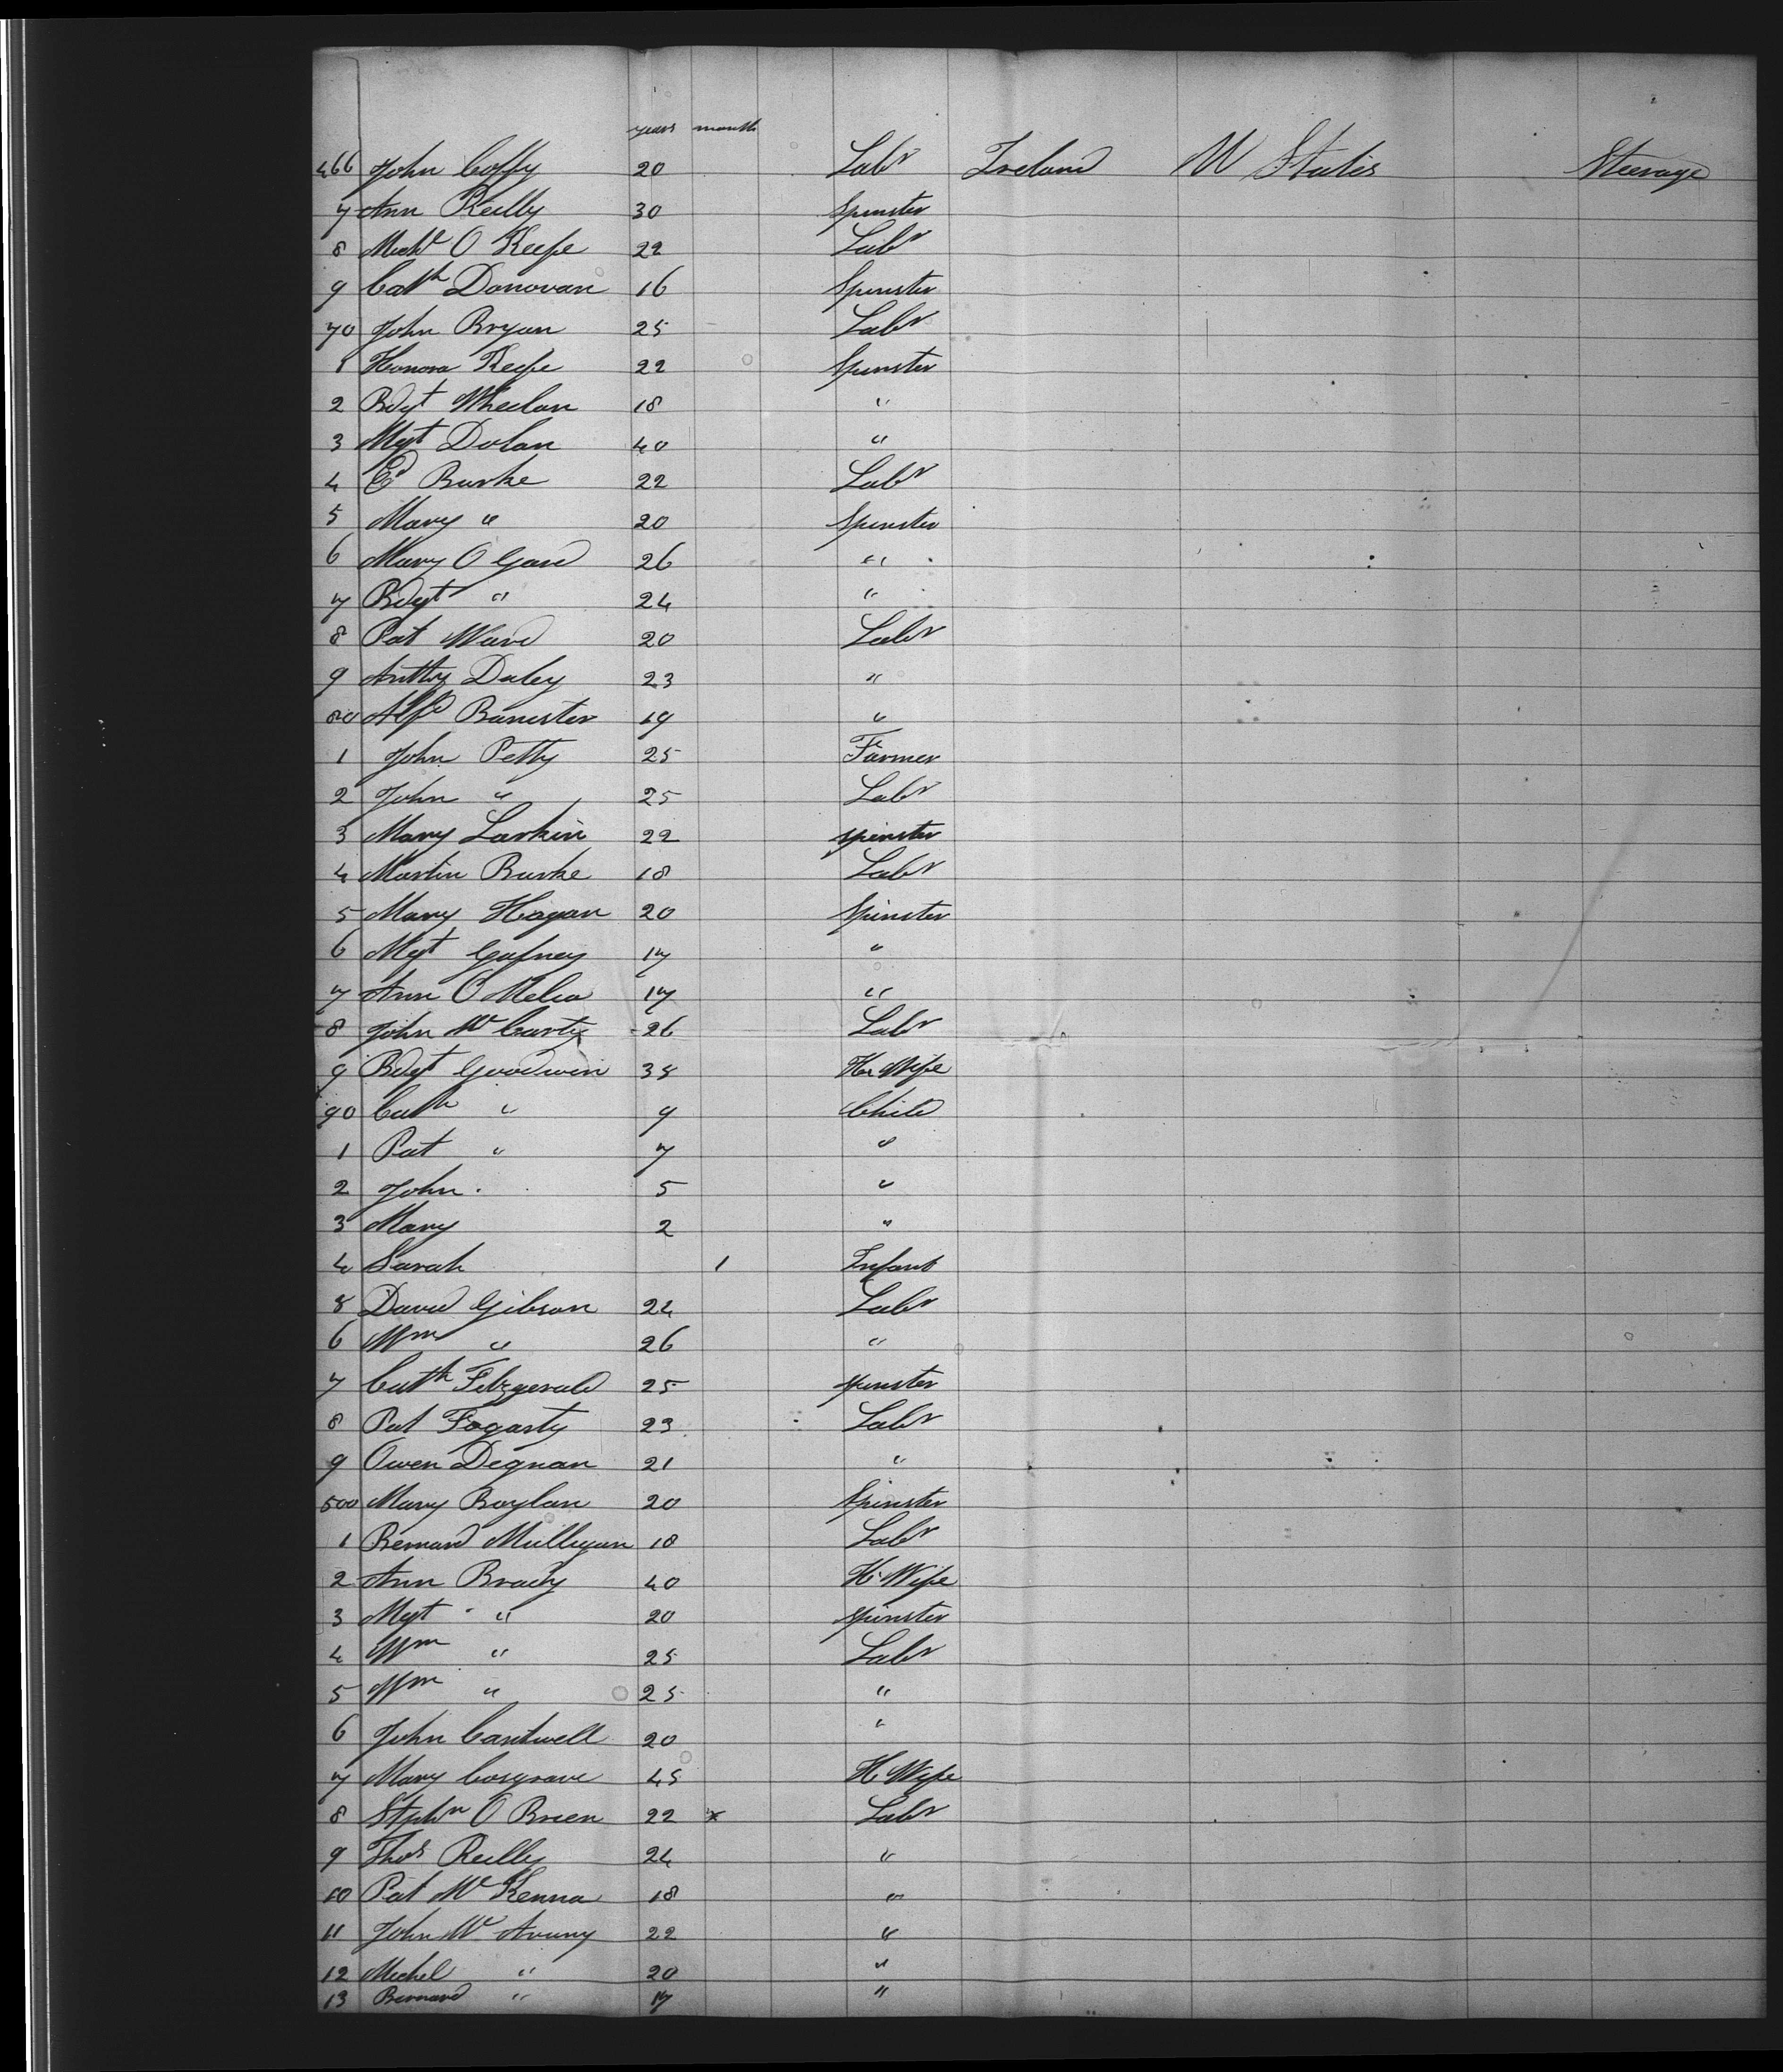 years month
466 John Coffy 20 Labr Ireland U States Steerage
7 Ann Reilly 30 Spinster
8 Michl O Keefe 22 Labr
9 Cath Donovan 16 Spinster
70 John Bryan 25 Labr
1 Honora Keefe 22 Spinster
2 Bdgt Wheelan 18 "
3 Mgt Dolan 40 "
4 Ed Burke 22 Labr
5 Mary " 20 Spinster
6 Mary O 26 "
7 Bdgt " 24 "
8 Pat Ward 20 Labr
9 Anthy Daley 23 "
80 Alfd Banister 19 "
1 John Petty 25 Farmer
2 John " 25 Labr
3 Mary Larkin 22 spinster
4 Martin Burke 18 Labr
5 Mary Hagan 20 Spinster
6 Mgt Gafney 17 "
7 Ann O Melia 17 "
8 John Mc Carty 26 Labr
9 Bdgt Goodwin 38 Hs Wife
90 Cath " 9 Child
1 Pat " 7 "
2 John 5 "
3 Mary 2 "
4 Sarah 1 Infant
5 David Gibson 24 Labr
6 Wm " 26 "
7 Cath Fitzgerald 25 spinster
8 Pat Fogarty 23 Labr
9 Owen Degnan 21 "
500 Mary Boylan 20 Spinster
1 Bernard Mulligan 18 Labr
2 Ann Brady 40 H Wife
3 Mgt " 20 spinster
4 Wm " 25 Labr
5 Wm " 25 "
6 John Cantwell 20 "
7 Mary Cosgrave 45 H Wife
8 Stephn O Brien 22 x Labr
9 Thos Reilly 24 "
10 Pat Mc Kenna 18 "
11 John Mc 22 "
12 Michel " 20 "
13 Bernard " 17 "